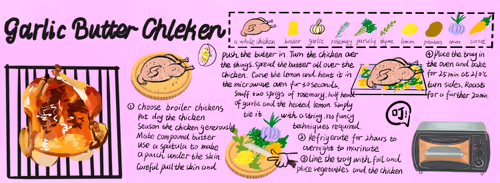 Garlic Butter Chicken
a whole chicken butter garlic rosemary parsely thyme lemon potatoes onion carrot
① Choose broiler chickens
Pat dry the chicken
Season the chicken generously
Make compound butter
use a spatula to make
a pouch under the skin.
Careful pull the skin and
push the butter in. Turn the chicken over
the things. Spread the butter all over the
chicken. Carve the lemon and heat it in
the microwave oven for 30 seconds
Stuff two sprigs of rosemary, half head
of garlic and the heated lemon. Simply
tie it with a string, no fancy
techniques required.
② Refrigerate for 2 hours to
overnight to marinate
③ Line the tray with foil and
place vegetables and the chicken
④ Place the tray in
the oven and bake
for 25 min at 210℃
turn sides, Roasts
for a further 20min